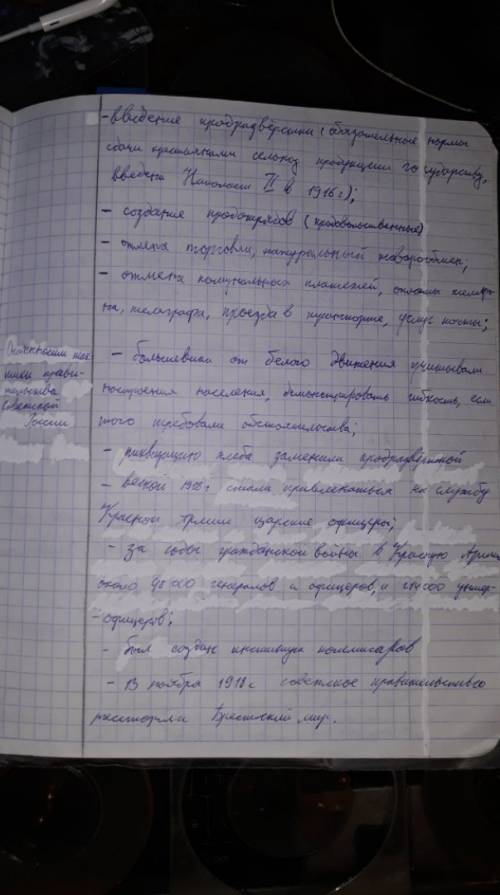 - введение продразвёрстки (обязательные нормы
сдачи крестьянами сельхоз продукции государству,
введена Николаем II в 1916 г);
- создание продотрядов (продовольственные)
- отмена торговли, натуральный товарообмен;
- отмена комунальных платежей, оплаты телефо
на, телеграфа, проезда в транспорте, услуг почты;
Особенности пол
итики прави-
тельства
советской
России
- большевики от белого движения учитывали
настроения населения, демонстрировать гибкость, если
того требовали обстоятельства;
- реквизицию хлеба заменили продразвёрсткой
- весной 1918 г. стали привлекаться на службу
Красной Армии царские офицеры;
- за годы гражданской войны в Красную Арми
около 48 000 генералов и офицеров, и 214 000 унтер-
- офицеров;
- был создан институт комиссаров
- 13 ноября 1918 г советское правительство
расторгли Брестский мир.